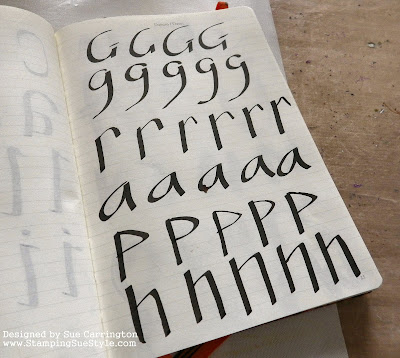 G G G G
g g g g g
r r r r r r
a a a a a
p p p p p
h n n n n
Designed by Sue Carrington
www.StampingSueStyle.com